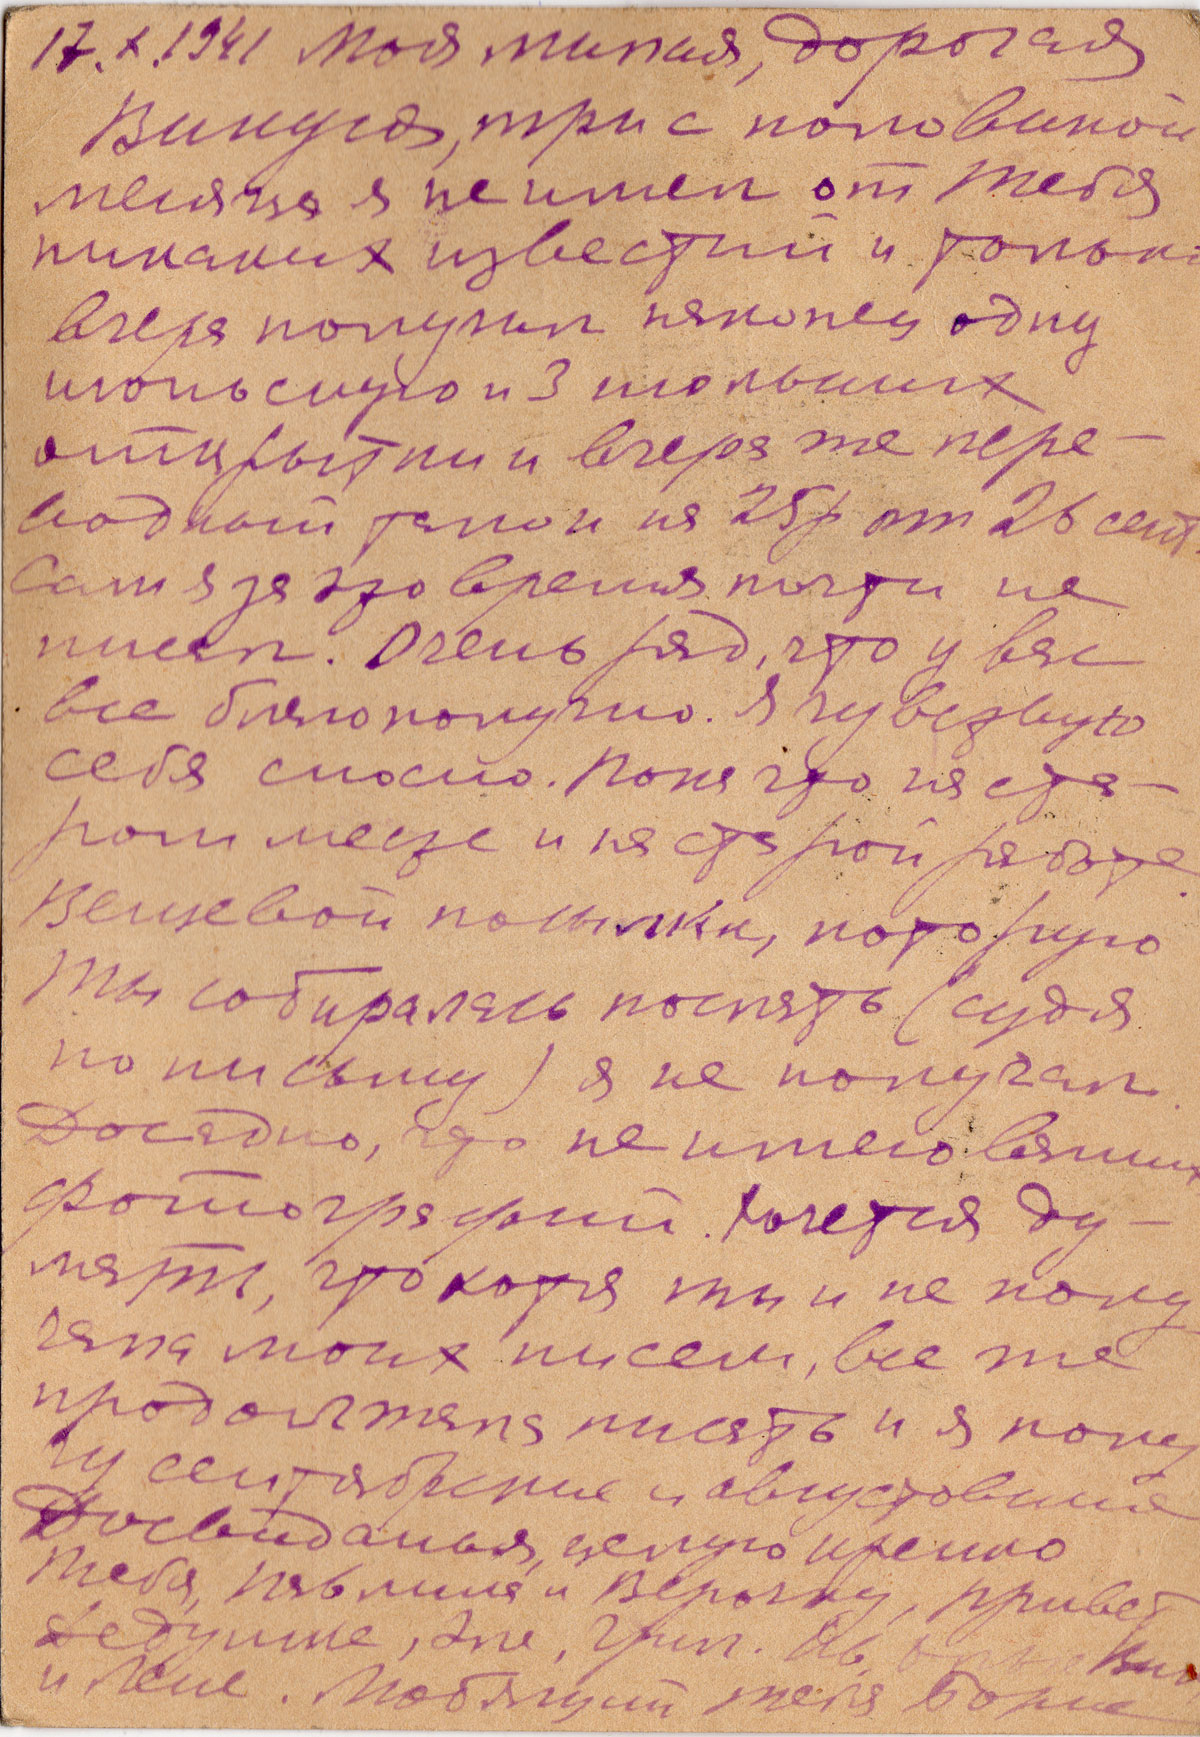 17.X.1941 Моя милая, дорогая
Викуся, три с половиной
месяца я не имел от тебя
никаких известий и только
вчера получил наконец одну
июньскую и 3 июльских
открытки и вчера же пере-
водный талон на 25р от 26 сент.
Сам я за это время почти не
писал. Очень рад, что у вас
все благополучно. Я чувствую
себя сносно. Пока что на ста-
ром месте и на старой работе.
Вещевой посылки, которую
ты собиралась послать (судя
по письму) я не получал.
Досадно, что не имею ваших
фотографий. Хочется ду-
мать, что хотя ты и не полу
чала моих писем, все же
продолжала писать и я полу
чу сентябрьские и августовские
Досвиданья, целую крепко
тебя, Павлика и Верочку, привет
дедушке, Эле, Григ. Ив,
и Лене. Любящий тебя Боря